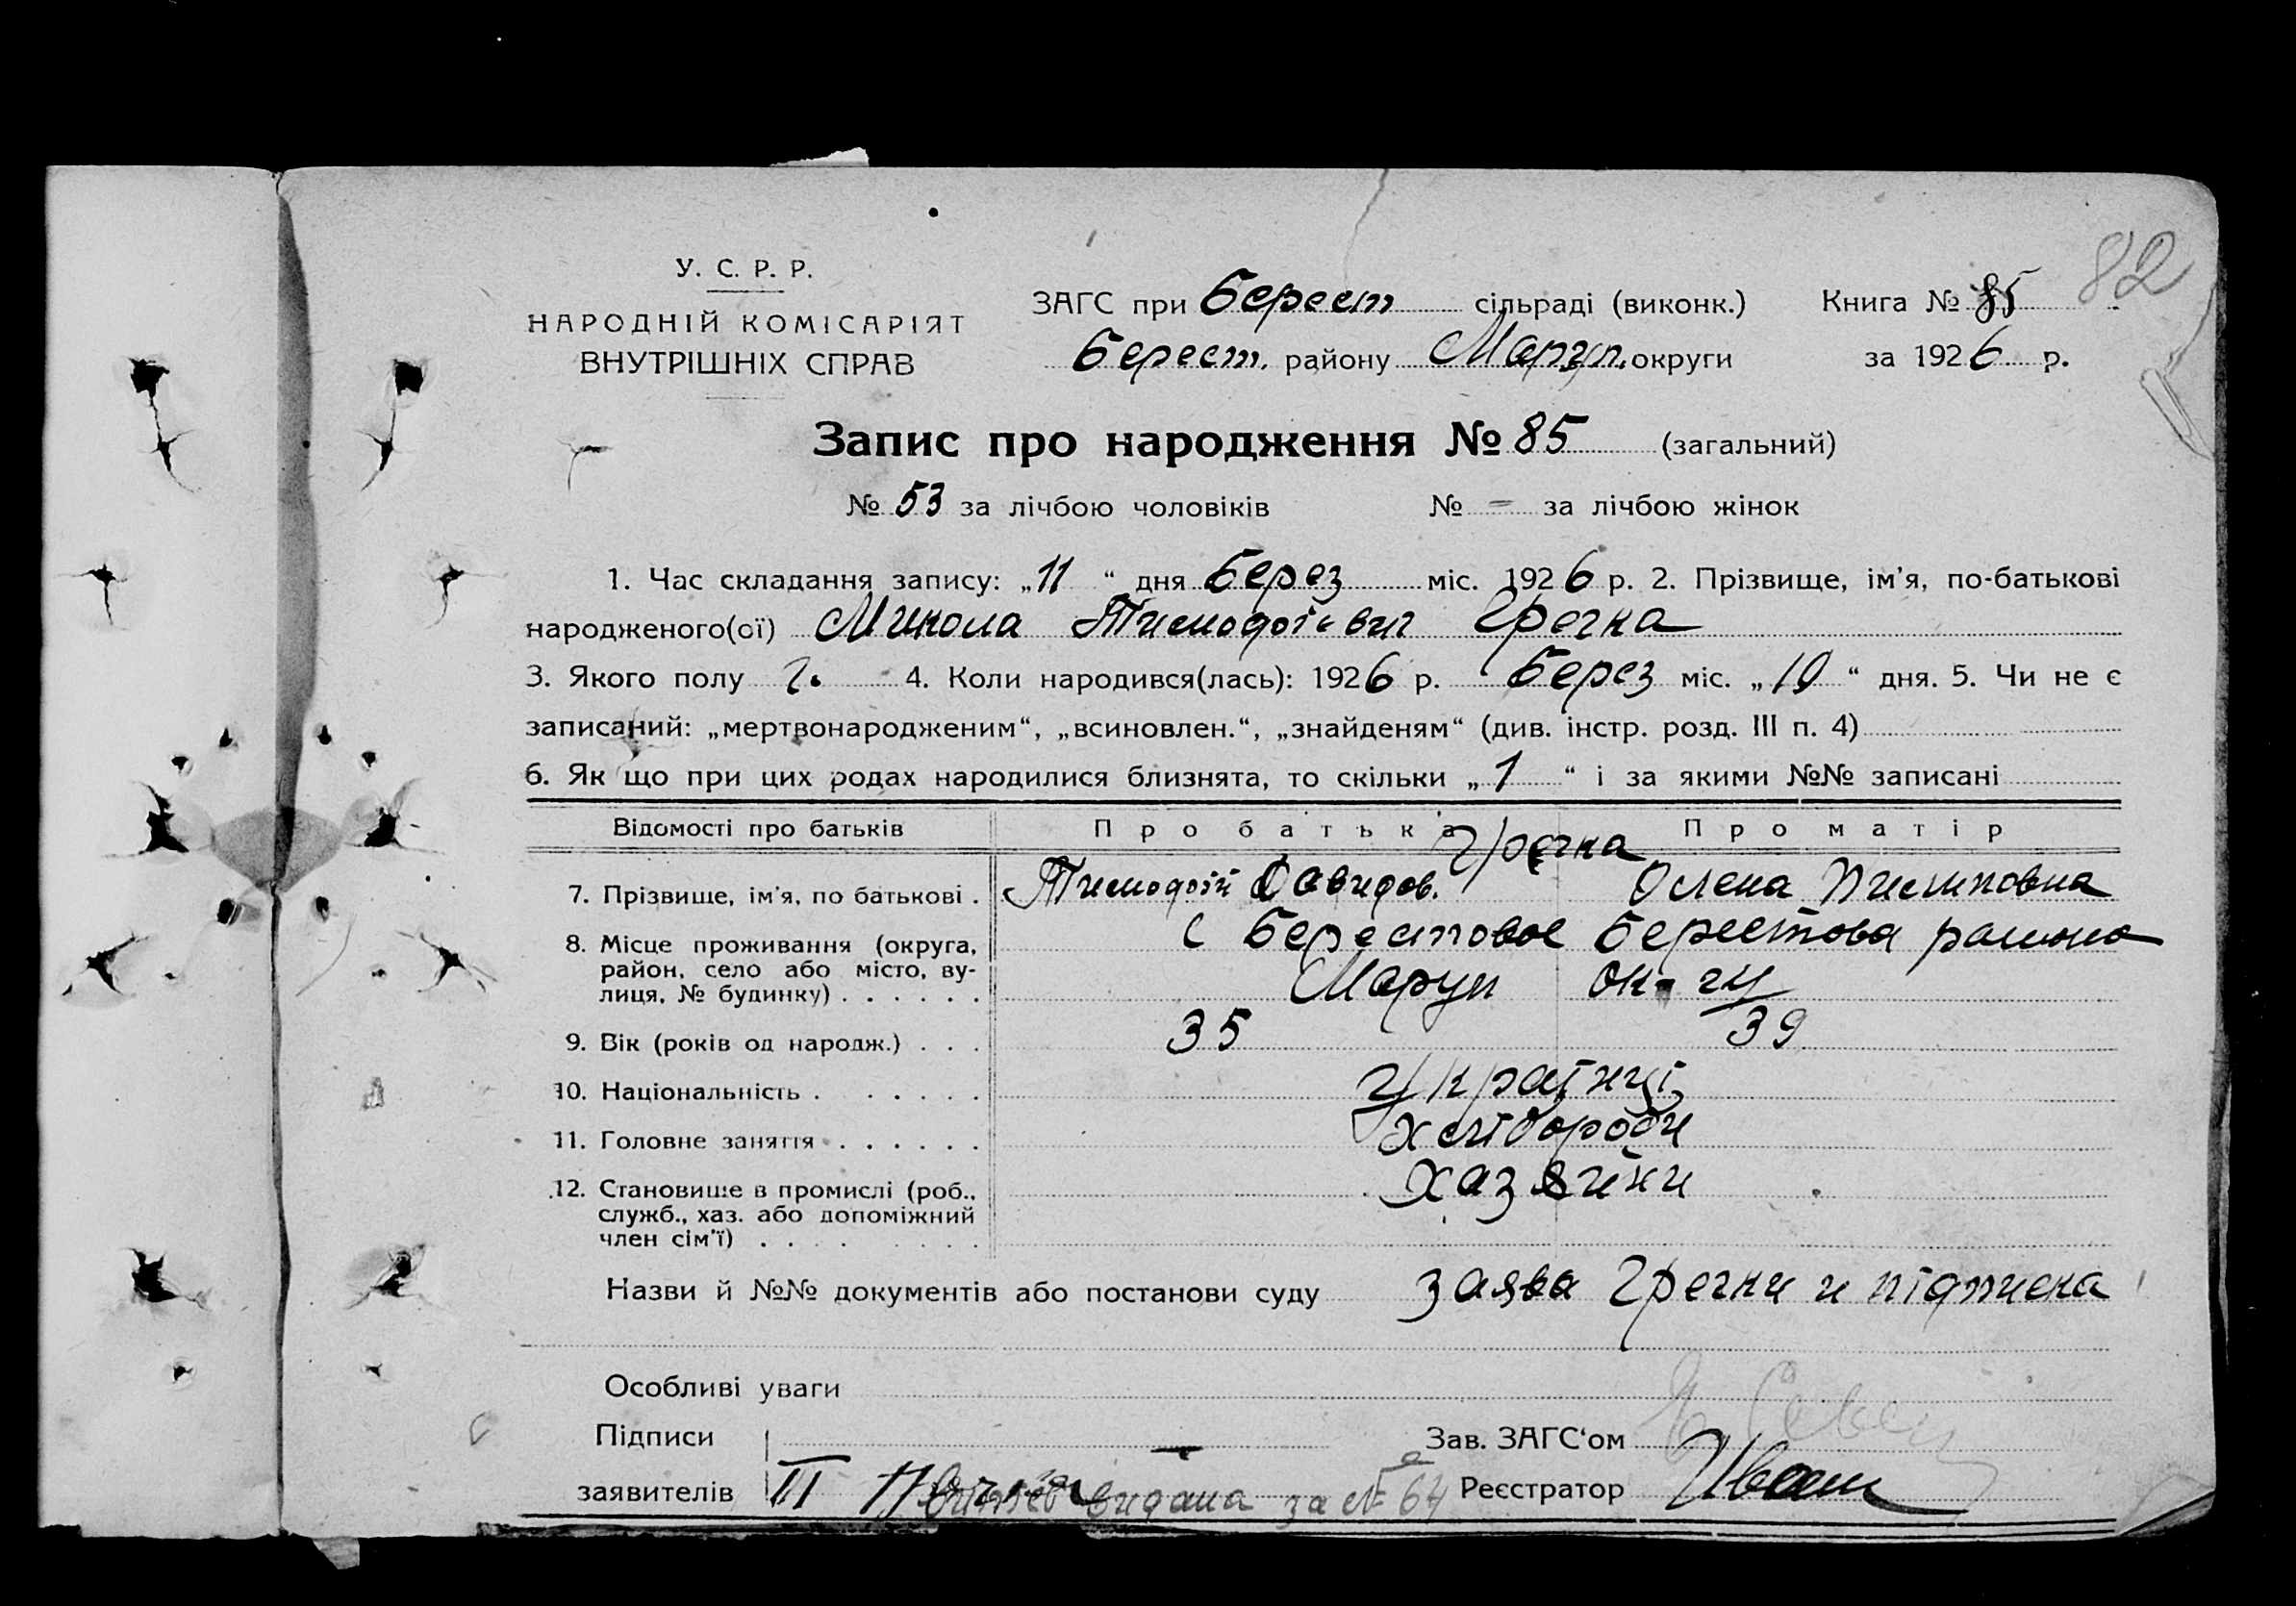 82
У. С. Р. Р.
НАРОДНІЙ КОМІСАРІЯТ
ВНУТРІШНІХ СПРАВ
ЗАГС при Берест сільраді (виконк.) Книга № 85
Берест. району Маріуп. округи за 1926 р.
Запис про народження № 85 (загальний)
№ 53 за лічбою чоловіків № = за лічбою жінок
1. Час складання запису: „11“ дня Берез міс. 1926 р. 2. Прізвище, ім'я, по-батькові
народженого(ої) Микола Тимофієвич Гречка
3. Якого полу ч. 4. Коли народився(лась): 1926 р. Берез міс. „10“ дня. 5. Чи не є
записаний: „мертвонародженим“, „всиновлен.“, „знайденям“ (див. інстр. розд. III п. 4)
6. Як що при цих родах народилися близнята, то скільки „1“ і за якими №№ записані
Відомості про батьків Про батька Про матір
Гречка
7. Прізвище, ім'я, по батькові . Тимофій Давидов. Олена Пилиповна
8. Місце проживання (округа, с Берестовое Берестова района
район, село або місто, ву-
лиця, № будинку) . . . . . . Маруп ок-ги
9. Вік (років од народж.) . . . 35 39
10. Національність . . . . . . Українці
11. Головне заняття . . . . . . хлібороби
12. Становище в промислі (роб., хазяйни
служб., хаз. або допоміжний
член сім'ї) . . . . . . . .
Назви й №№ документів або постанови суду заява Гречки и підписка
Особливі уваги
Підписи Зав. ЗАГС'ом
заявителів III видана за № 64 Реєстратор Иваш